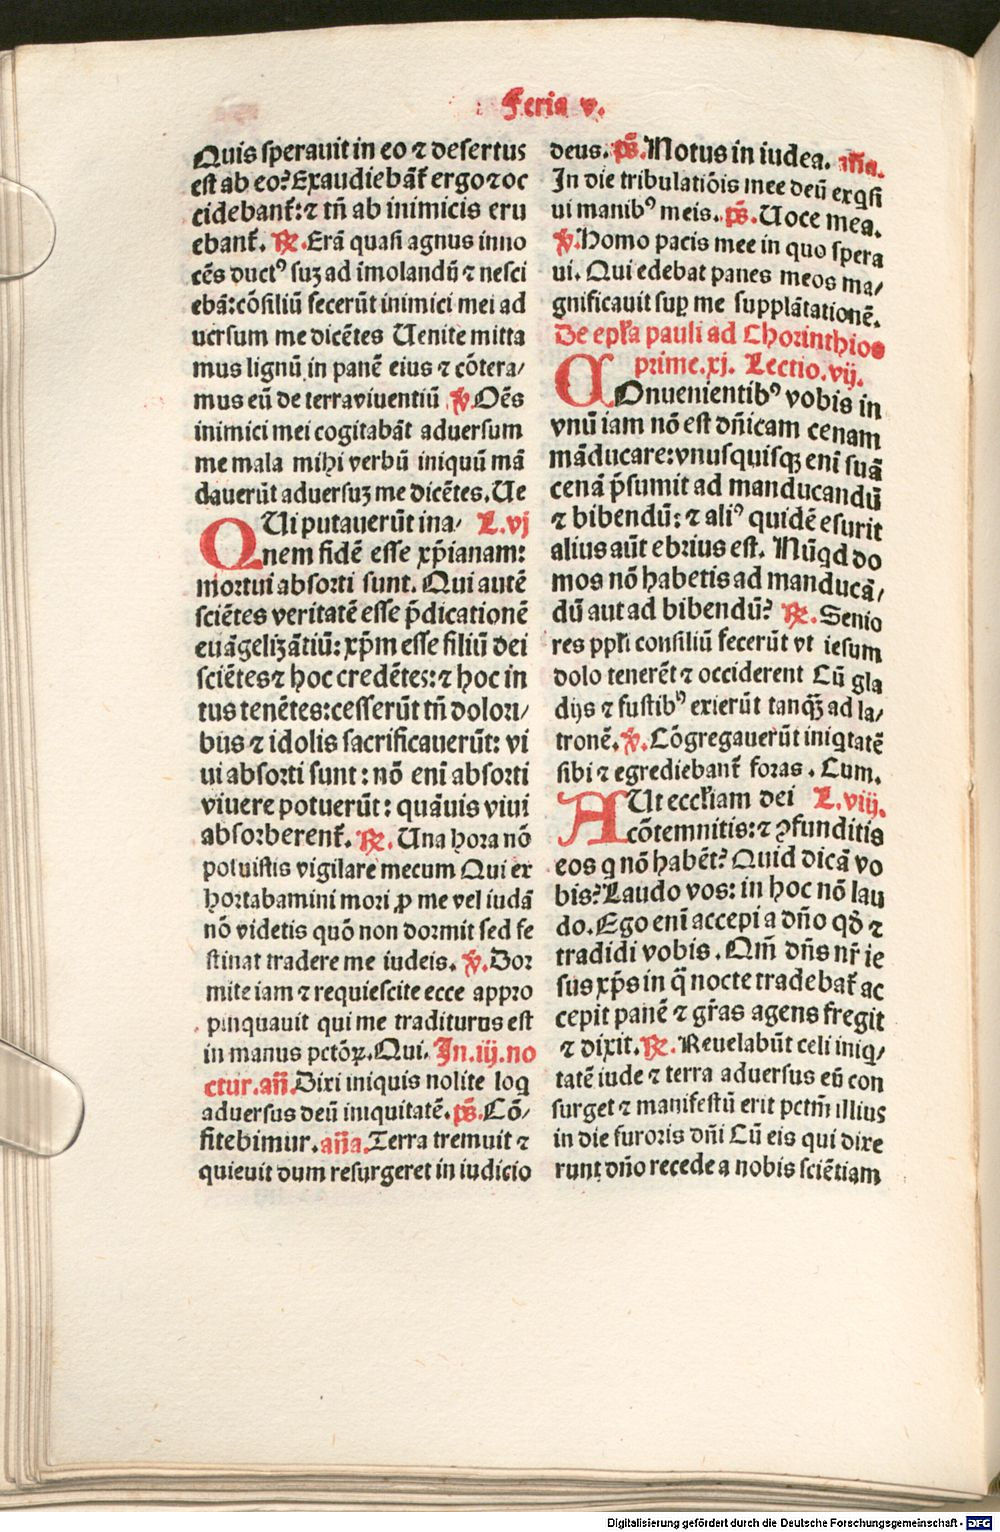 Feria v.
Quis sperauit in eo ⁊ desertus
est ab eo? Exaudiebāt̄ ergo ⁊ oc
cidebant̄: ⁊ tñ ab inimicis eru
ebant̄. ℞. Erā quasi agnus inno
cēs ductꝰ suꝫ ad imolandū ⁊ nesci
ebā: cōsiliū fecerūt inimici mei ad
uersum me dicētes Uenite mitta
mus lignū in panē eius ⁊ cōtera/
mus eū de terra viuentiū ℣ Oēs
inimici mei cogitabāt aduersum
me mala mihi verbū iniquū mā
dauerūt aduersuꝫ me dicētes. Ue
QUi putauerūt ina/ L. vj
nem fidē esse xp̄ianam:
mortui absorti sunt. Qui autē
sciētes veritatē esse p̄dicationē
euāgelizātiū: xp̄m esse filiū dei
sciētes ⁊ hoc credētes: ⁊ hoc in
tus tenētes: cesserūt tñ dolori/
bus ⁊ idolis sacrificauerūt: vi
ui absorti sunt: nō enī absorti
viuere potuerūt: quāuis viui
absorberent̄. ℞. Una hora nō
potuistis vigilare mecum Qui ex
hortabamini mori ꝓ me vel iudā
nō videtis quō non dormit sed fe
stinat tradere me iudeis. ℣. Dor
mite iam ⁊ requiescite ecce appro
pinquauit qui me traditurus est
in manus pctōꝝ. Qui. In. iij. no
ctur. añ. Dixi iniquis nolite loq
aduersus deū iniquitatē. ps̄. Cō/
fitebimur. aña. Terra tremuit ⁊
quieuit dum resurgeret in iudicio
deus. ps̄. Notus in iudea. aña.
In die tribulatiōis mee deū exqsi
ui manibꝰ meis. ps̄. Uoce mea.
℣. Homo pacis mee in quo spera
ui. Qui edebat panes meos ma/
gnificauit suꝑ me supplātationē.
De epl̄a pauli ad Chorinthios
prime. xj. Lectio. vij.
COnuenientibꝰ vobis in
vnū iam nō est dñicam cenam
māducare: vnusquisqꝫ enī suā
cenā p̄sumit ad manducandū
⁊ bibendū: ⁊ aliꝰ quidē esurit
alius aūt ebrius est. Nūqd do
mos nō habetis ad manducā/
dū aut ad bibendū? ℞. Senio
res ppl̄i consiliū fecerūt vt iesum
dolo tenerēt ⁊ occiderent Cū gla
dijs ⁊ fustibꝰ exierūt tanqꝫ ad la/
tronē. ℣. Cōgregauerūt iniqtatē
sibi ⁊ egrediebant̄ foras. Cum.
AUt eccl̄iam dei L. viij.
cōtemnitis: ⁊ ꝯfunditis
eos q nō habēt? Quid dicā vo
bis? Laudo vos: in hoc nō lau
do. Ego enī accepi a dño qđ ⁊
tradidi vobis. Qm̄ dñs nr̄ ie
sus xp̄s in q̄ nocte tradebat̄ ac
cepit panē ⁊ gr̄as agens fregit
⁊ dixit. ℞. Reuelabūt celi iniq/
tatē iude ⁊ terra aduersus eū con
surget ⁊ manifestū erit pctm̄ illius
in die furoris dñi Cū eis qui dixe
runt dño recede a nobis sciētiam
Digitalisierung gefördert durch die Deutsche Forschungsgemeinschaft - DFG